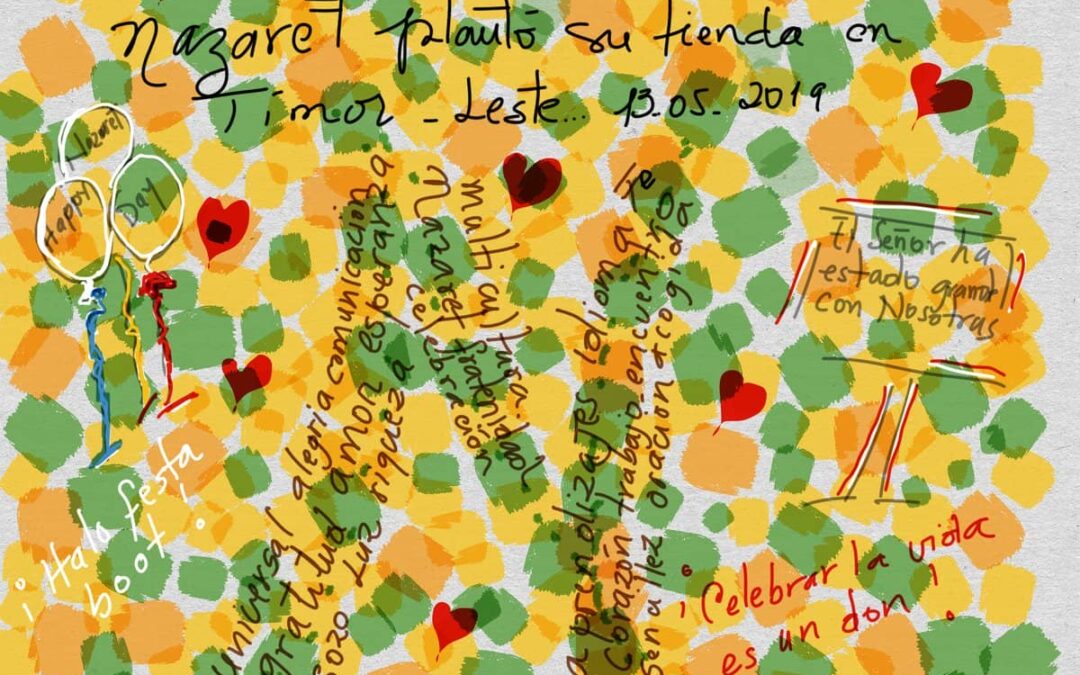 Nazaret plantó su tienda en
Timor - Leste... 13.05.2019
Nazaret
Happy
Day
¡Halo festa
boot!
universal alegria comunicación
gratitud amor esperanza
gozo Luz riqueza
Nazaret celebración
multicultural
fraternidad
aprendizajes Idioma
Corazón trabajo encuentro
Senzallez oración acogida
Te Da
El Señor ha
estado grande
con Nosotras
¡Celebrar la vida
es un don!